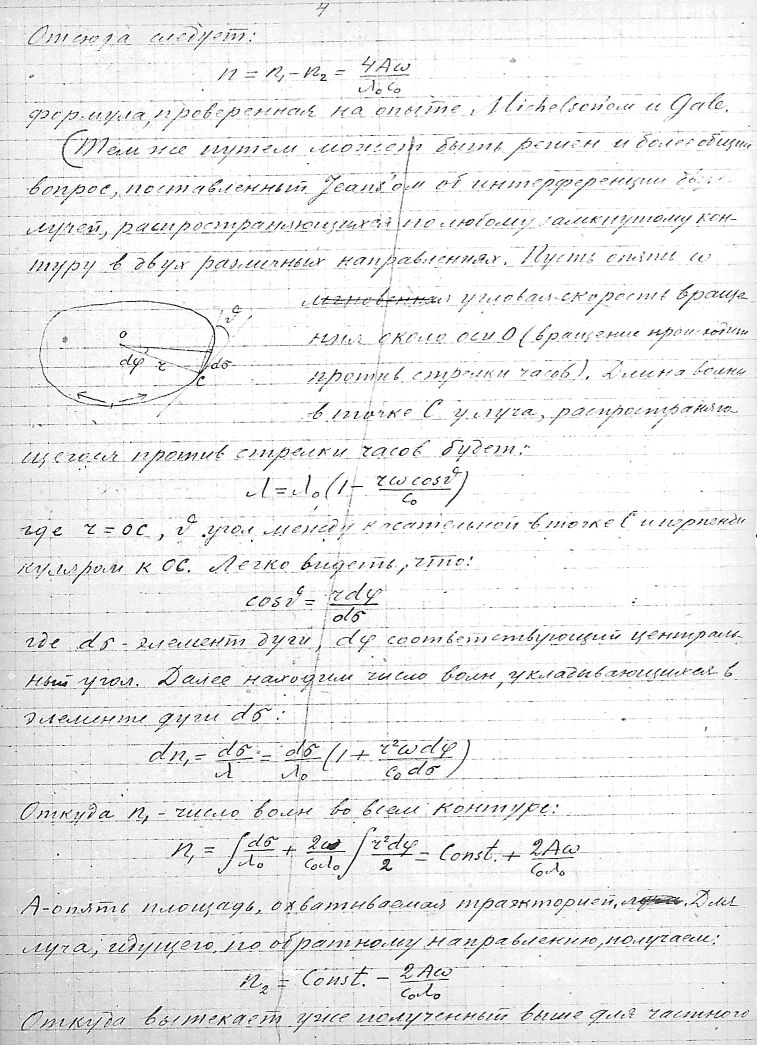 4
Отсюда следует:
n = n₁ - n₂ = 4Aω / λ₀c₀
формула, проверенная на опыте Michelson'ом и Gale.
(Тем же путем может быть решен и более общий
вопрос, поставленный Jeans'ом об интерференции двух
лучей, распространяющихся по любому замкнутому кон-
туру в двух различных направлениях. Пусть опять ω
мгновенная угловая скорость враще-
ния около оси O (вращение происходит
против стрелки часов). Длина волны
в точке C у луча, распространяю-
O
ϑ
dφ
r
dσ
C
щегося против стрелки часов будет:
λ = λ₀ (1 - rω cosϑ / c₀)
где r = OC, ϑ угол между касательной в точке C и перпенди
куляром к OC. Легко видеть, что:
cosϑ = rdφ / dσ
где dσ - элемент дуги, dφ соответствующий централь-
ный угол. Далее находим число волн, укладывающихся в
элементе дуги dσ:
dn₁ = dσ / λ = dσ / λ₀ (1 + r²ωdφ / c₀dσ)
Откуда n₁ - число волн во всем контуре:
n₁ = ∫ dσ / λ₀ + 2ω / c₀λ₀ ∫ r²dφ / 2 = Const. + 2Aω / c₀λ₀
A - опять площадь, охватываемая траэкторией луча. Для
луча, идущего по обратному направлению, получаем:
n₂ = Const. - 2Aω / c₀λ₀
Откуда вытекает уже полученный выше для частного